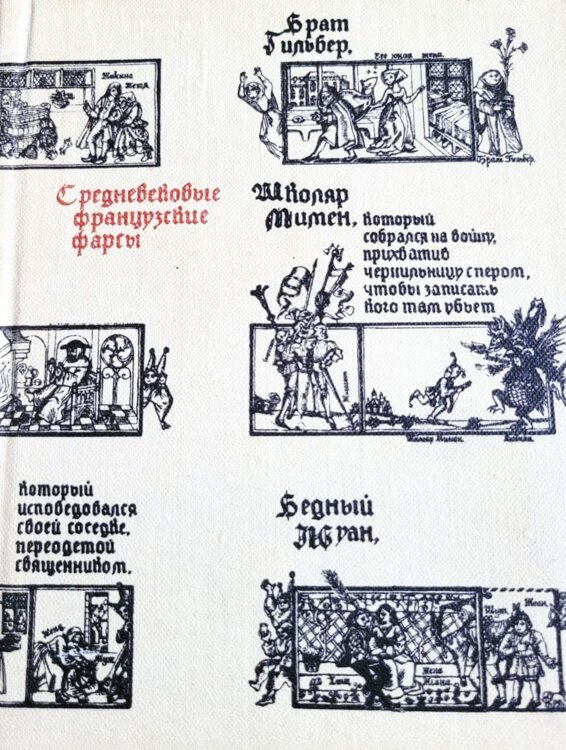 Брат
Гильбер,
Его юная жена.
Жакина
теща
Брат Гильбер.
Средневековые
французские
фарсы
Школяр
Мимен,
который
собрался на войну,
прихватив
чернильницу с пером,
чтобы записать
кого там убьет
Школяр Мимен.
который
исповедовался
своей соседке,
переодетой
священником.
Бедный
Жуан,
жена
Шут
Жоан.
жена